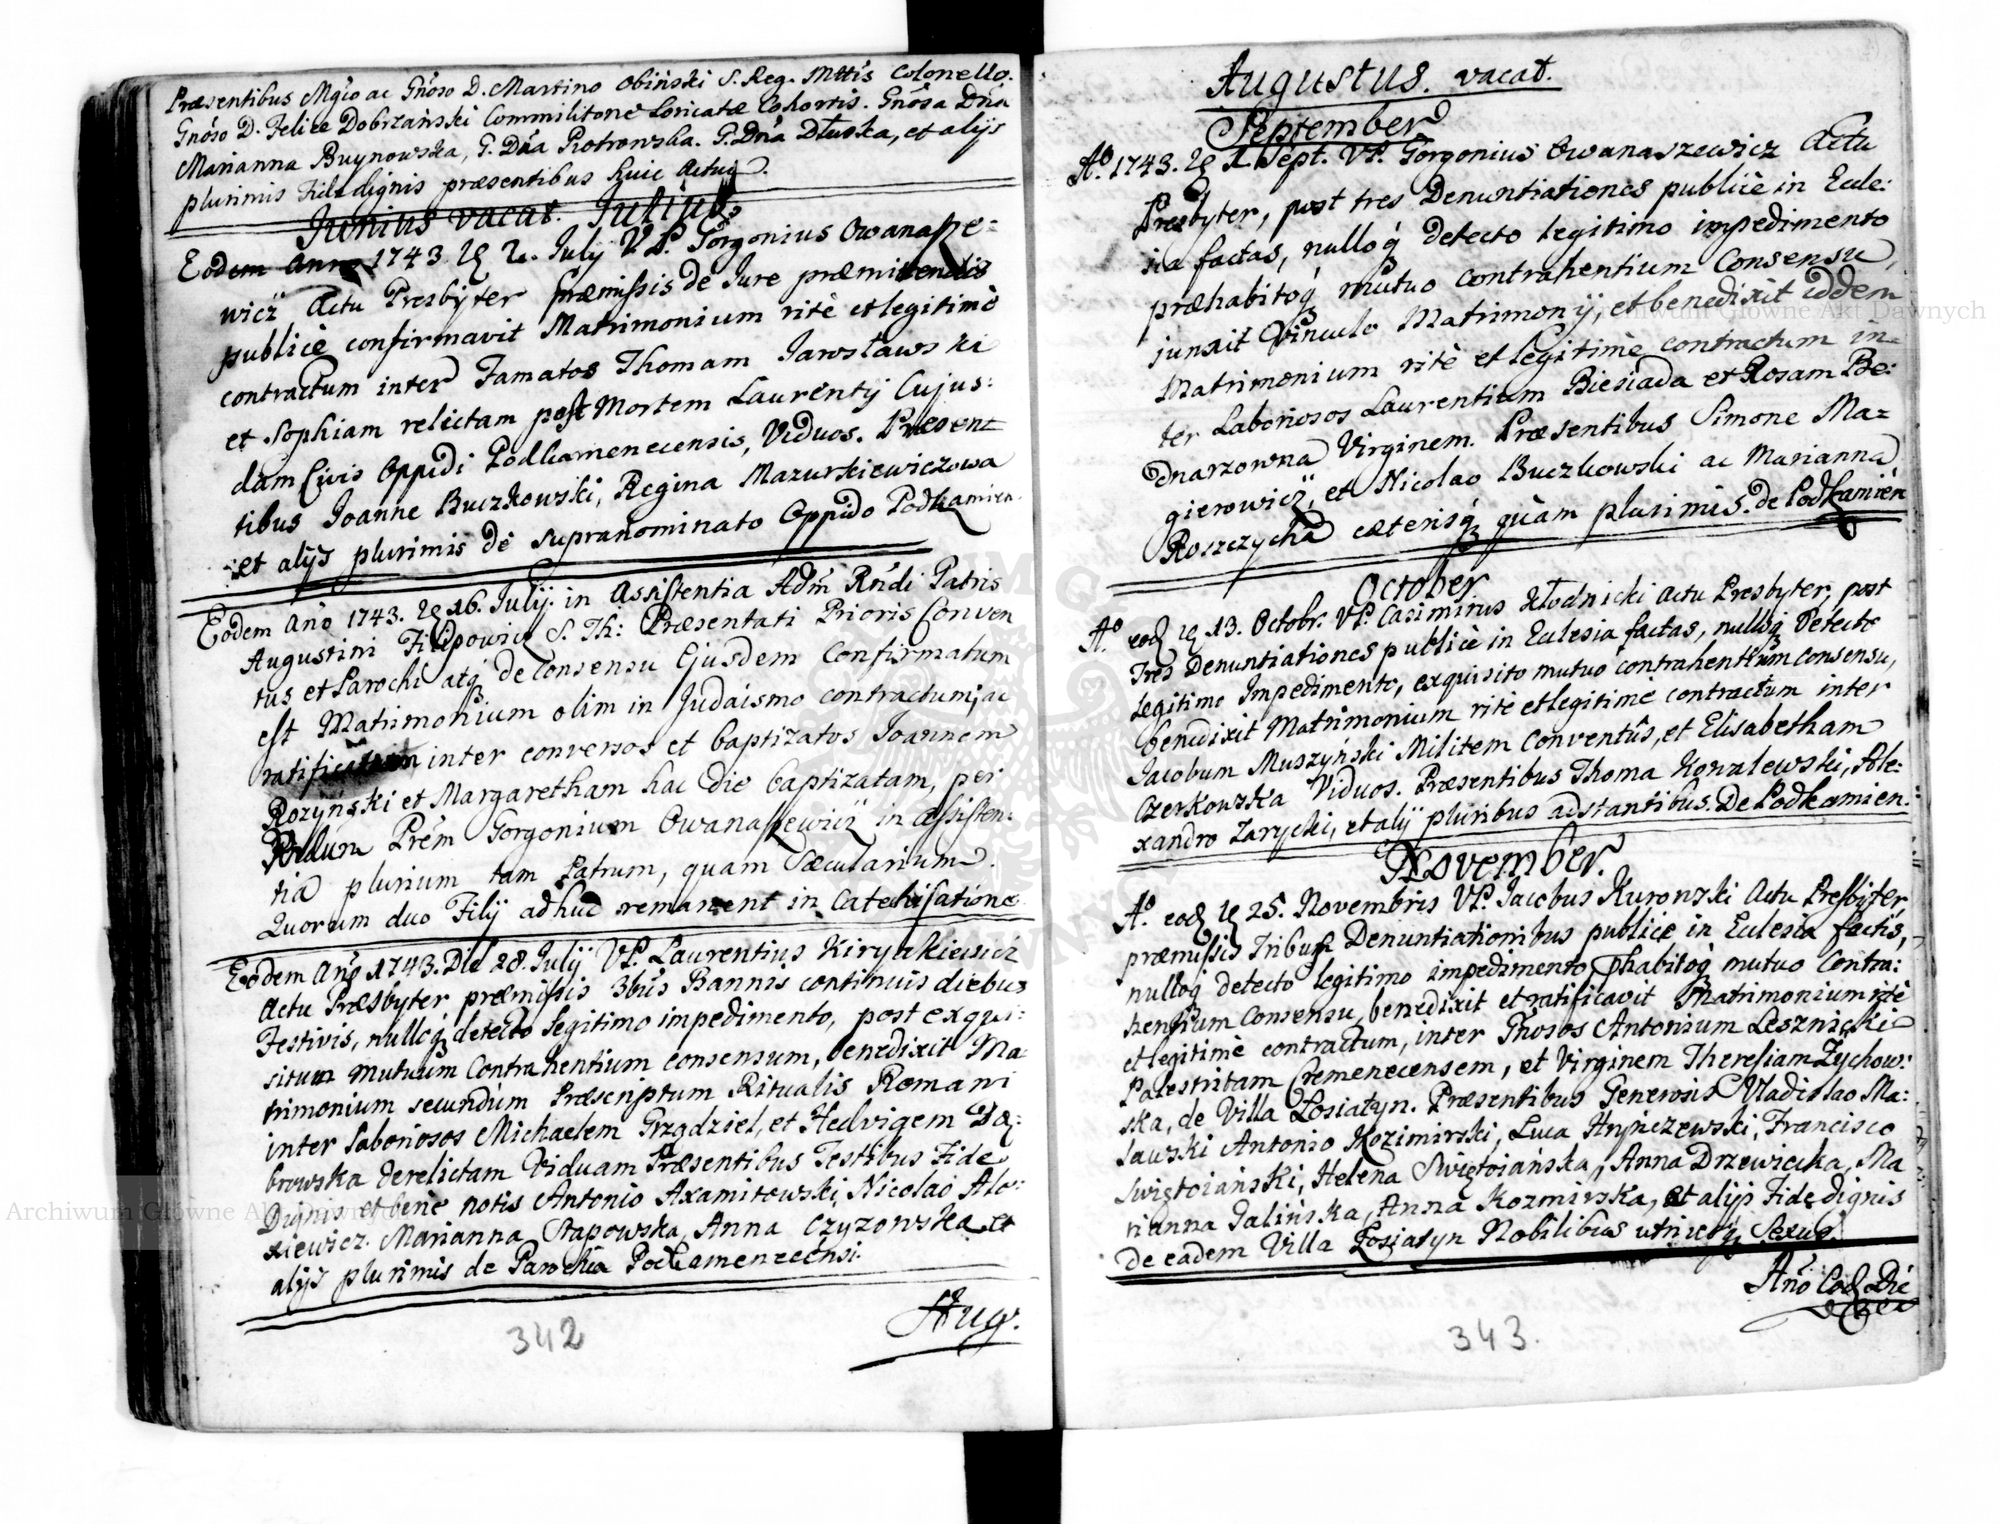 Præsentibus Mgco ac Gnoso D. Martino Obiński S. Reg. Mttis Colonello.
Gnoso D. Felice Dobrzański Commilitone Loricatæ Cohortis. Gnosa Dna
Marianna Buynowska, G. Dna Piotrowska. G. Dna Dłuska, et alijs
plurimis Fide dignis præsentibus huic Actui.
Junius vacat. Julius
Eodem Anno 1743 die 2. July V.P. Gorgonius Owanasze-
wicz Actu Presbyter Præmissis de Jure præmittendis
publicè confirmavit Matrimonium ritè et legitimè
contractum inter Famatos Thomam Jarosławski
et Sophiam relictam post Mortem Laurentij Cujus-
dam Civis Oppidi Podkamenecensis, Viduos. Præsen-
tibus Joanne Buczkowski, Regina Mazurkiewiczowa
et alijs plurimis de supranominato Oppido Podkamien.
Eodem Año 1743. die 16. Julij. in Assistentia Adm Rndi Patris
Augustini Filipowicz S. Th: Præsentati Prioris Conven
tus et Parochi atq de consensu Ejusdem Confirmatum
est Matrimonium olim in Judaismo contractum, ac
ratificatum inter conversos et baptizatos Joannem
Rozyński et Margaretham hac die baptizatam, per
Prem Gorgonium Owanaszewicz in assisten-
tia plurium tam Patrum, quam Sæcularium.
Quorum duo Filij adhuc remanent in Catechisatione
Eodem Año 1743. Die 28. Julij V.P. Laurentius Kirynkiewicz
Actu Præsbyter præmissis 3bus Bannis continuis diebus
Festivis, nulloq detecto legitimo impedimento, post exqui-
situm mutuum Contrahentium consensum, benedixit Ma-
trimonium secundùm Præscriptum Ritualis Romani
inter Laboriosos Michaelem Grządziel, et Hedvigem Dą-
browska derelictam Viduam Præsentibus Testibus Fide
Dignis et bene notis Antonio Axamitowski, Nicolao Ale-
xiewicz. Marianna Stapowska, Anna Czyzowska et
alijs plurimis de Parochia Podkamenecensi.
Aug.
342
Augustus. vacat.
September
Aº. 1743. die 1. Sept. V.P. Gorgonius Owanaszewicz Actu
Presbyter, post tres Denuntiationes publicè in Eccle-
sia factas, nulloq detecto legitimo impedimento
præhabitoq mutuo contrahentium Consensu,
junxit Vinculo Matrimonij, et benedixit iddem
Matrimonium ritè et legitimè contractum in-
ter Laboriosos Laurentium Biesiada et Rosam Be-
dnarzowna Virginem. Præsentibus Simone Ma-
gierowicz, et Nicolao Buczkowski ac Marianna
Roszczycha cæterisq quàm plurimis. de Podkamień
October
Aº eod die 13. Octobr. V.P. Casimirus Kłodnicki Actu Presbyter, post
Tres Denuntiationes publicè in Eclesia factas, nulloq Detecto
Legitimo Impedimento, exquisito mutuo contrahentium consensu,
benedixit Matrimonium ritè et legitimè contractum inter
Jacobum Muszynski Militem Conventûs, et Elisabetham
Czerkowska Viduos. Præsentibus Thoma Kowalewski, Ale-
xandro Zarycki, et alij pluribus adstantibus. De Podkamien.
November.
Aº eod die 25. Novembris V.P. Jacobus Kuronski Actu Presbyter,
præmissis Tribus Denuntiationibus publicè in Eclesia factis,
nulloq detecto legitimo impedimento, phabitoq mutuo Contra-
hentium Consensu, benedixit et ratificavit Matrimonium ritè
et legitimè contractum, inter Gnosos Antonium Lesznicki
Palestritam Cremenecensem, et Virginem Theresiam Zychow-
ska, de Villa Łosiatyn. Præsentibus Generosis Vladislao Ma-
sawski Antonio Kozimirski, Luca Hryńczewski, Francisco
Swiętoiański, Helena Swiętoiańska, Anna Drzewiecka, Ma
rianna Jalińska, Anna Kozmirska, et alijs Fide dignis
de eadem Villa Łosiatyn Nobilibus utriusq Sexus.
Año Eod Die
343.
Archiwum Główne Akt Dawnych
Archiwum Główne Akt Dawnych